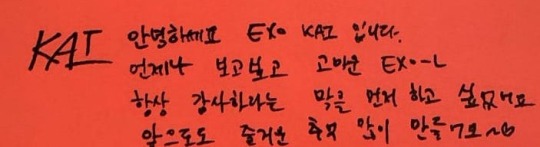 KAI 안녕하세요 EXO KAI 입니다.
언제나 보고보고 고마운 EXO-L
항상 감사하다는 말을 먼저 하고 싶었어요
앞으로도 즐거운 추억 많이 만들어요~